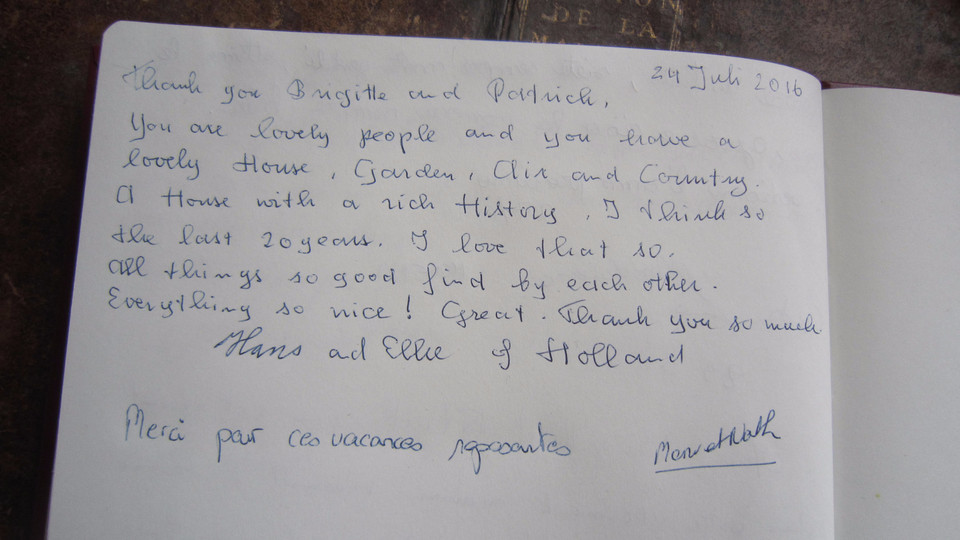 DE LA
24 Juli 2016
Thank you Brigitte and Patrick,
You are lovely people and you have a
lovely House, Garden, Air and Country.
A House with a rich History, I think so
the last 20 years. I love that so.
All things so good find by each other.
Everything so nice! Great. Thank you so much.
Hans ad Ellie of Holland
Merci pour ces vacances reposantes
et Nath